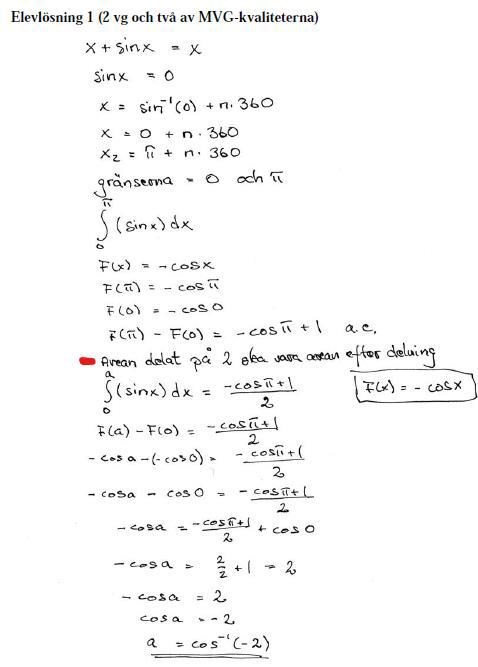 Elevlösning 1 (2 vg och två av MVG-kvaliteterna)
x + sinx = x
sinx = 0
x = sin⁻¹(0) + n·360
x = 0 + n·360
x₂ = π + n·360
gränserna = 0 och π
∫₀^π (sinx) dx
F(x) = -cosx
F(π) = -cosπ
F(0) = -cos0
F(π) - F(0) = -cosπ + 1 a.e.
Arean delat på 2 ska vara arean efter delning
∫₀^a (sinx) dx = (-cosπ+1)/2
F(x) = -cosx
F(a) - F(0) = (-cosπ+1)/2
-cosa-(-cos0) = (-cosπ+1)/2
-cosa - cos0 = (-cosπ+1)/2
-cosa = (-cosπ+1)/2 + cos0
-cosa = 2/2 + 1 = 2
-cosa = 2
cosa = -2
a = cos⁻¹(-2)